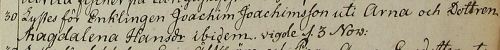 30 Lystes för Enklingen Joachim Joachimsson uti Arna och Dottren
Magdalena Hansdr ibidem. vigde d 3 Nov: